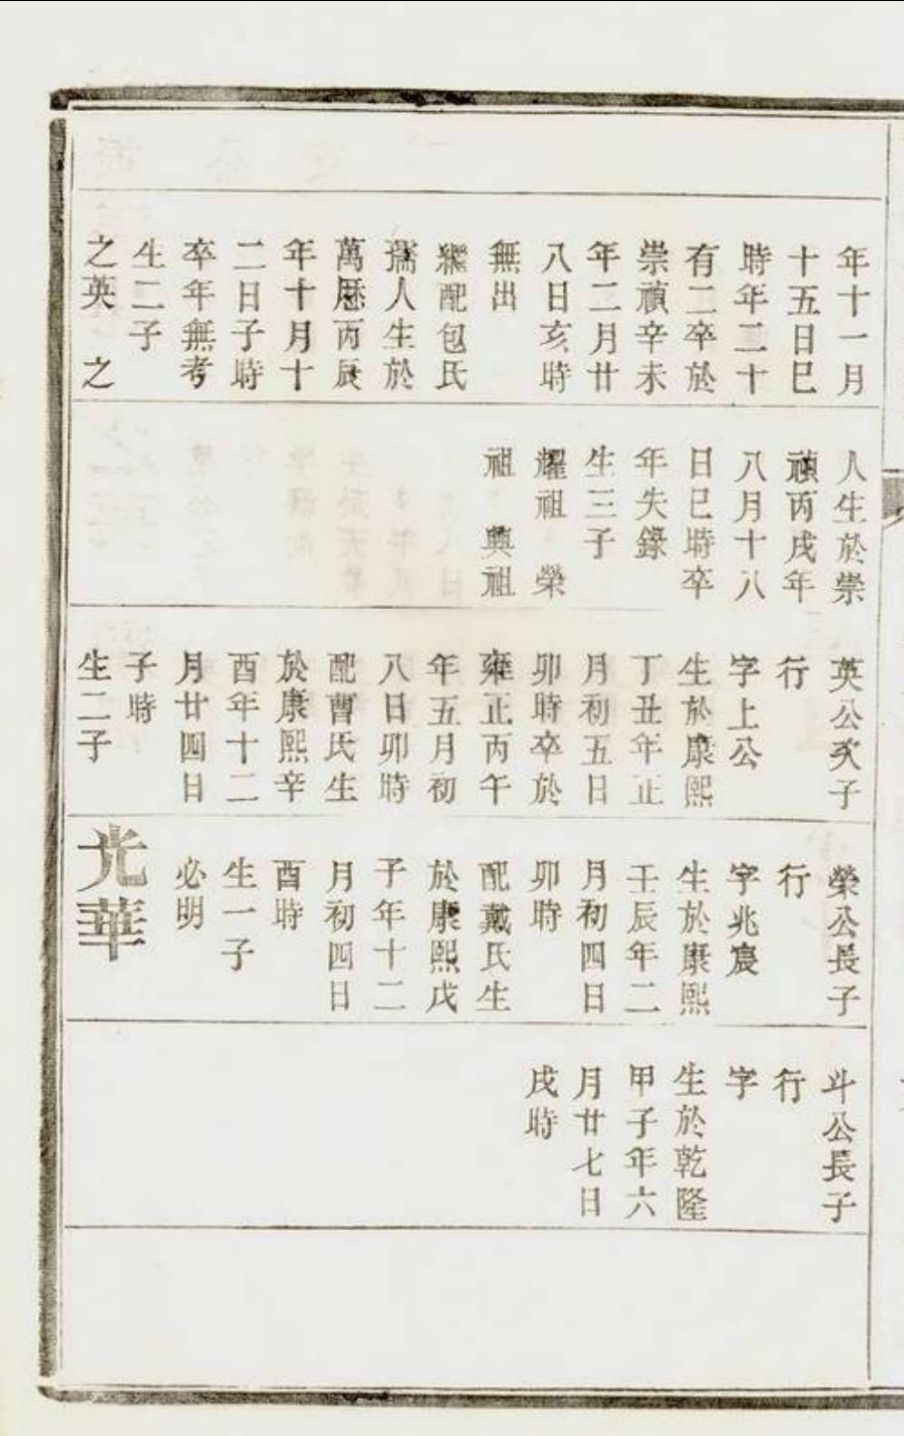 年十一月
十五日巳
時年二十
有二卒於
崇禎辛未
年二月廿
八日亥時
無出
繼配包氏
孺人生於
萬曆丙辰
年十月十
二日子時
卒年無考
生二子
之英　之
人生於崇
禎丙戌年
八月十八
日巳時卒
年失錄
生三子
耀祖　榮
祖　興祖
英公次子
行
字上公
生於康熙
丁丑年正
月初五日
卯時卒於
雍正丙午
年五月初
八日卯時
配曹氏生
於康熙辛
酉年十二
月廿四日
子時
生二子
榮公長子
行
字兆宸
生於康熙
壬辰年二
月初四日
卯時
配戴氏生
於康熙戊
子年十二
月初四日
酉時
生一子
必明
光華
斗公長子
行
字
生於乾隆
甲子年六
月廿七日
戌時